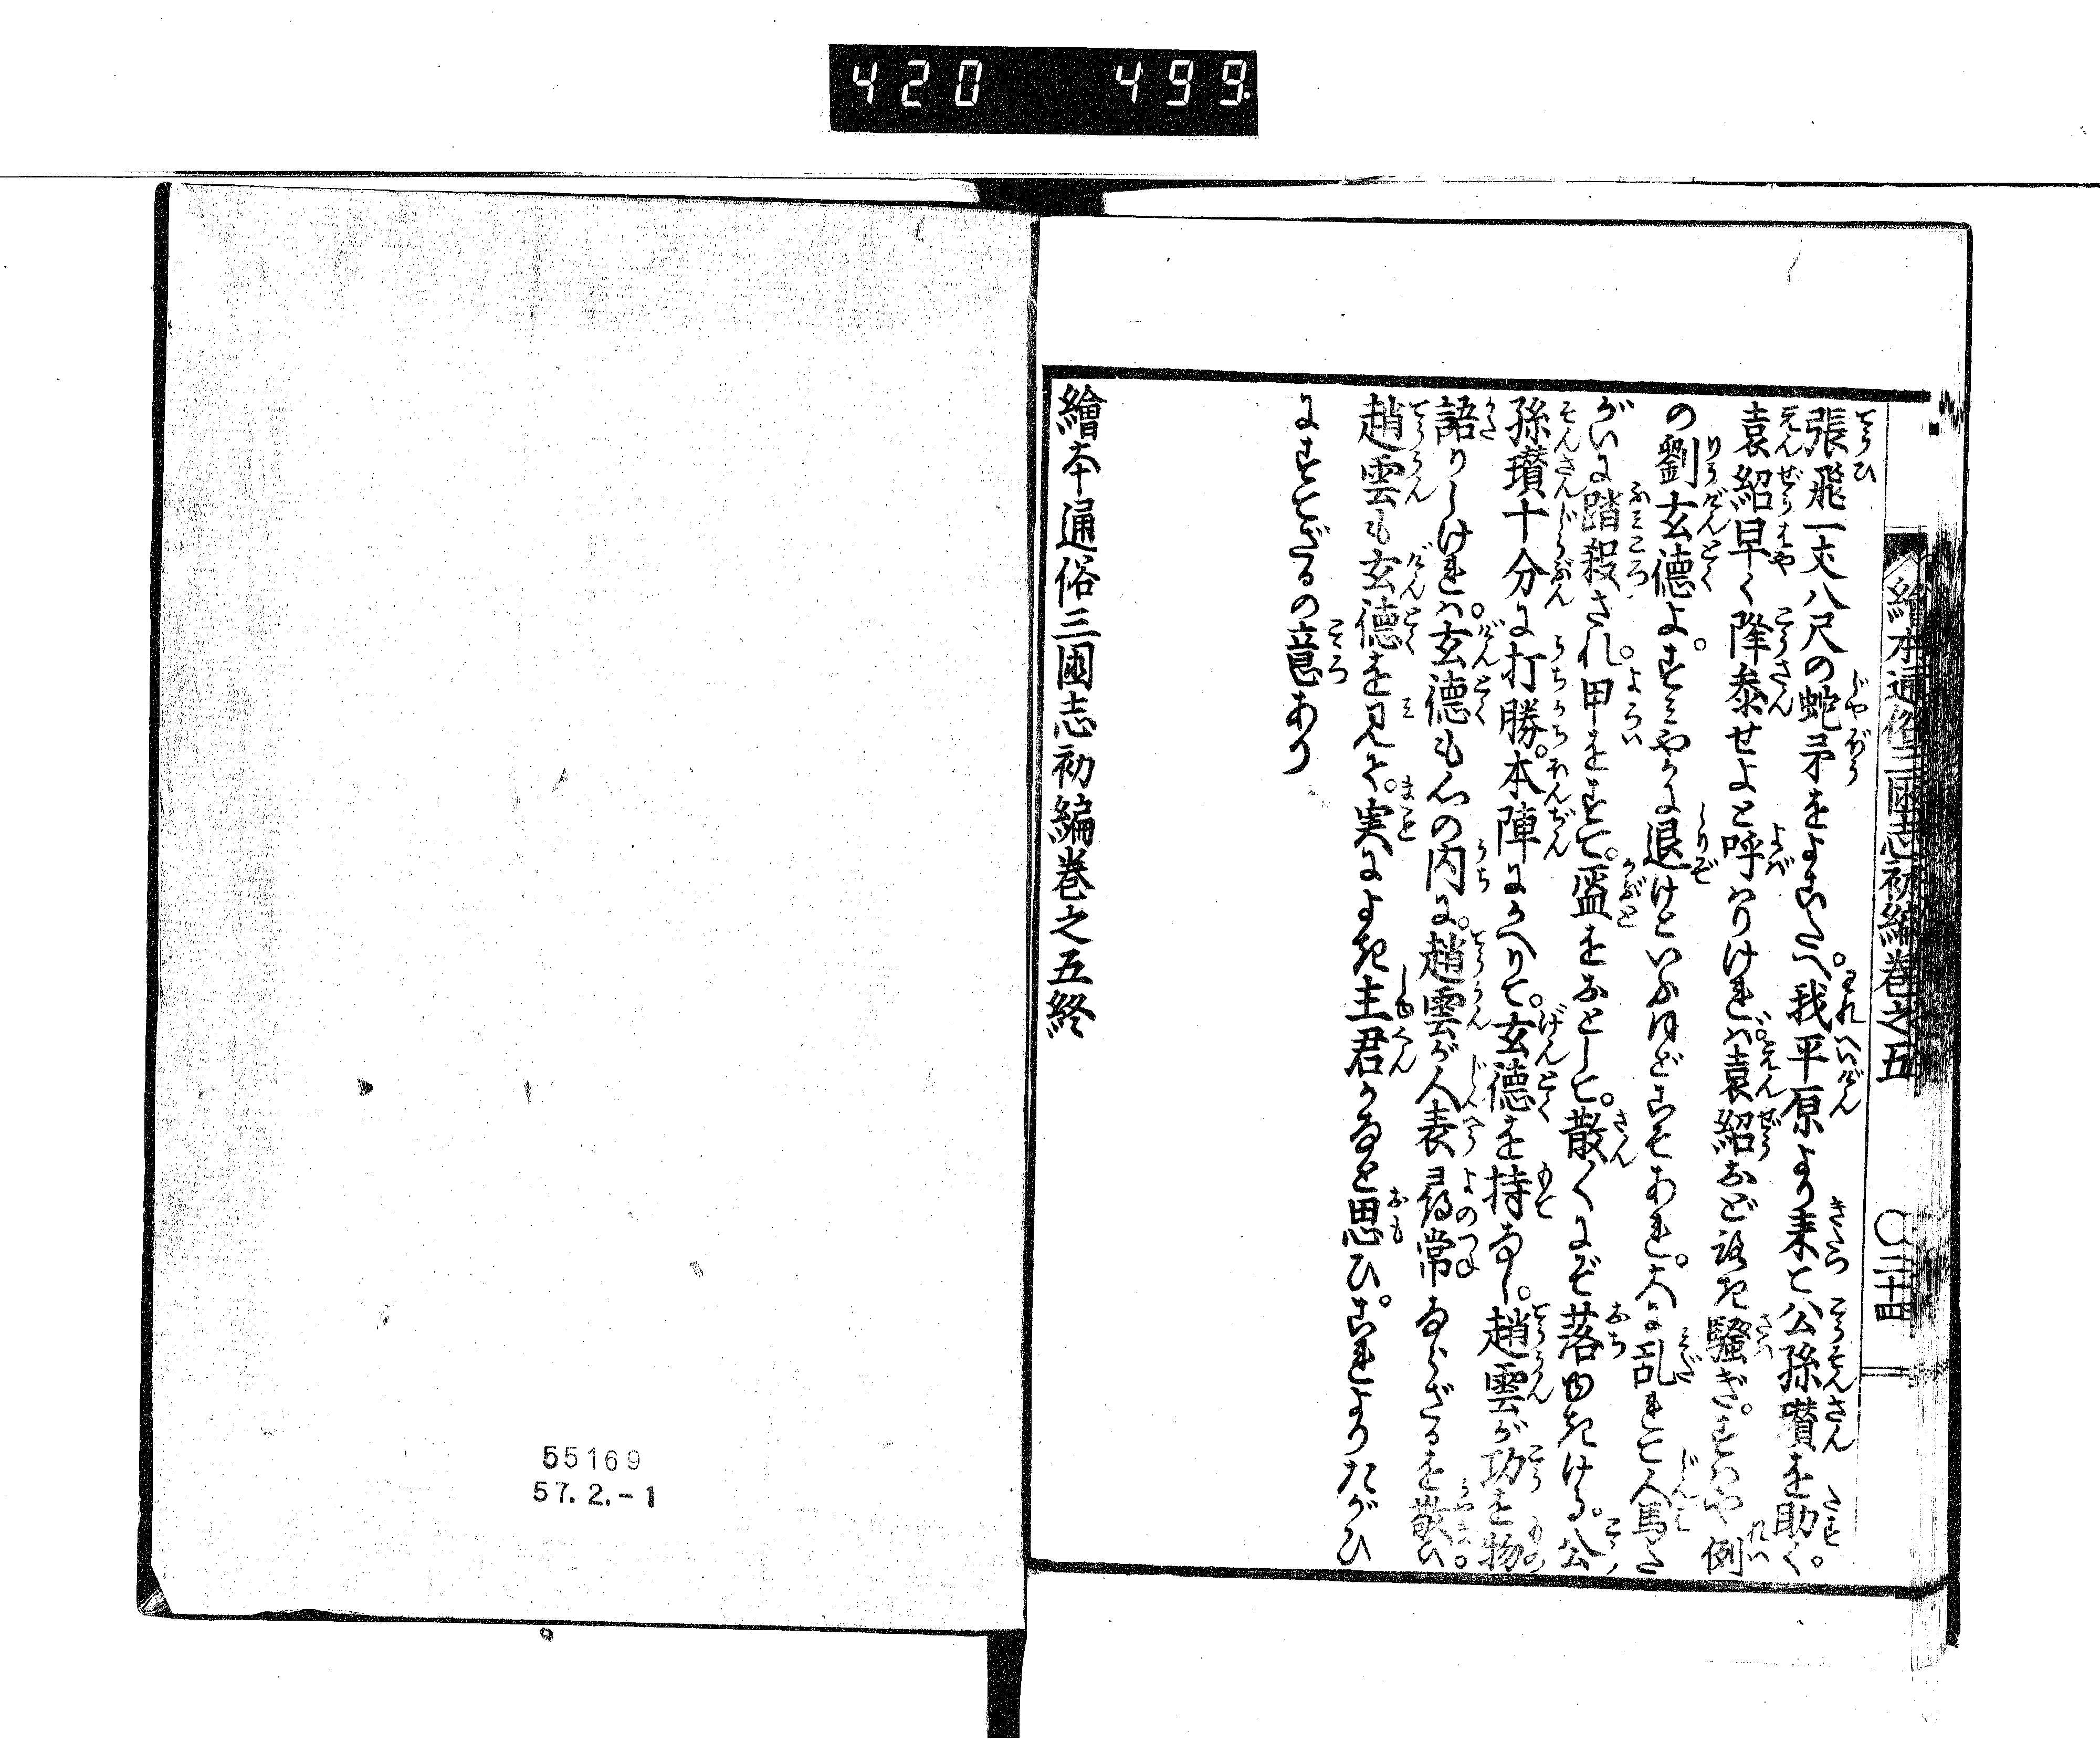 420 499
繪本通俗三國志初編巻之五 〇二十四
張飛一丈八尺の蛇矛をよこたへ。我平原より来て公孫瓚を助く。
袁紹早く降参せよと呼りけれバ。袁紹おどろき騒ぎ。すハや例
の劉玄徳よ。すミやかに退けといふほどこそあれ。大に乱れて人馬た
がいに踏殺され。甲をすて。盔をおとして。散〳〵にぞ落ゆきける。公
孫瓚十分に打勝。本陣にかへりて。玄徳を持なし。趙雲が功を物
語りしけれバ。玄徳も心の内に。趙雲が人表尋常ならざるを敬ひ。
趙雲も玄徳を見て。実によき主君かなと思ひ。これよりたがひ
にすてざるの意あり
繪本通俗三國志初編巻之五終
55169
57.2.-1